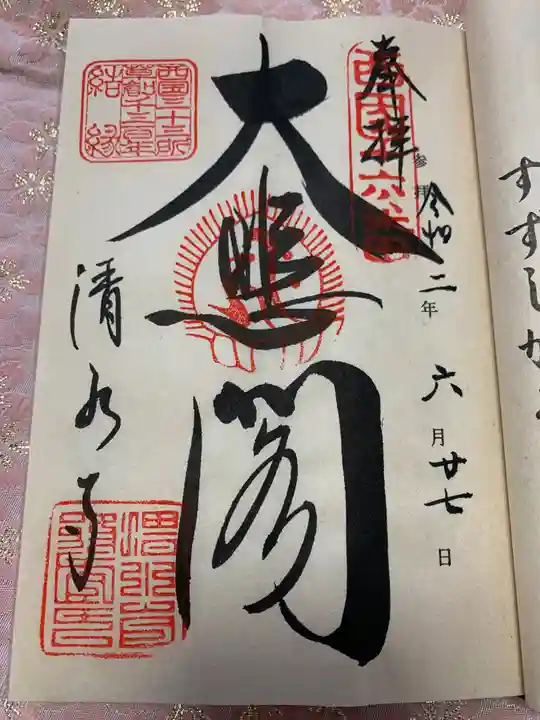 奉拝
参拝 令和二年六月廿七日
大悲閣
清水寺
西国三十三所
草創千三百年
結縁
すずしか